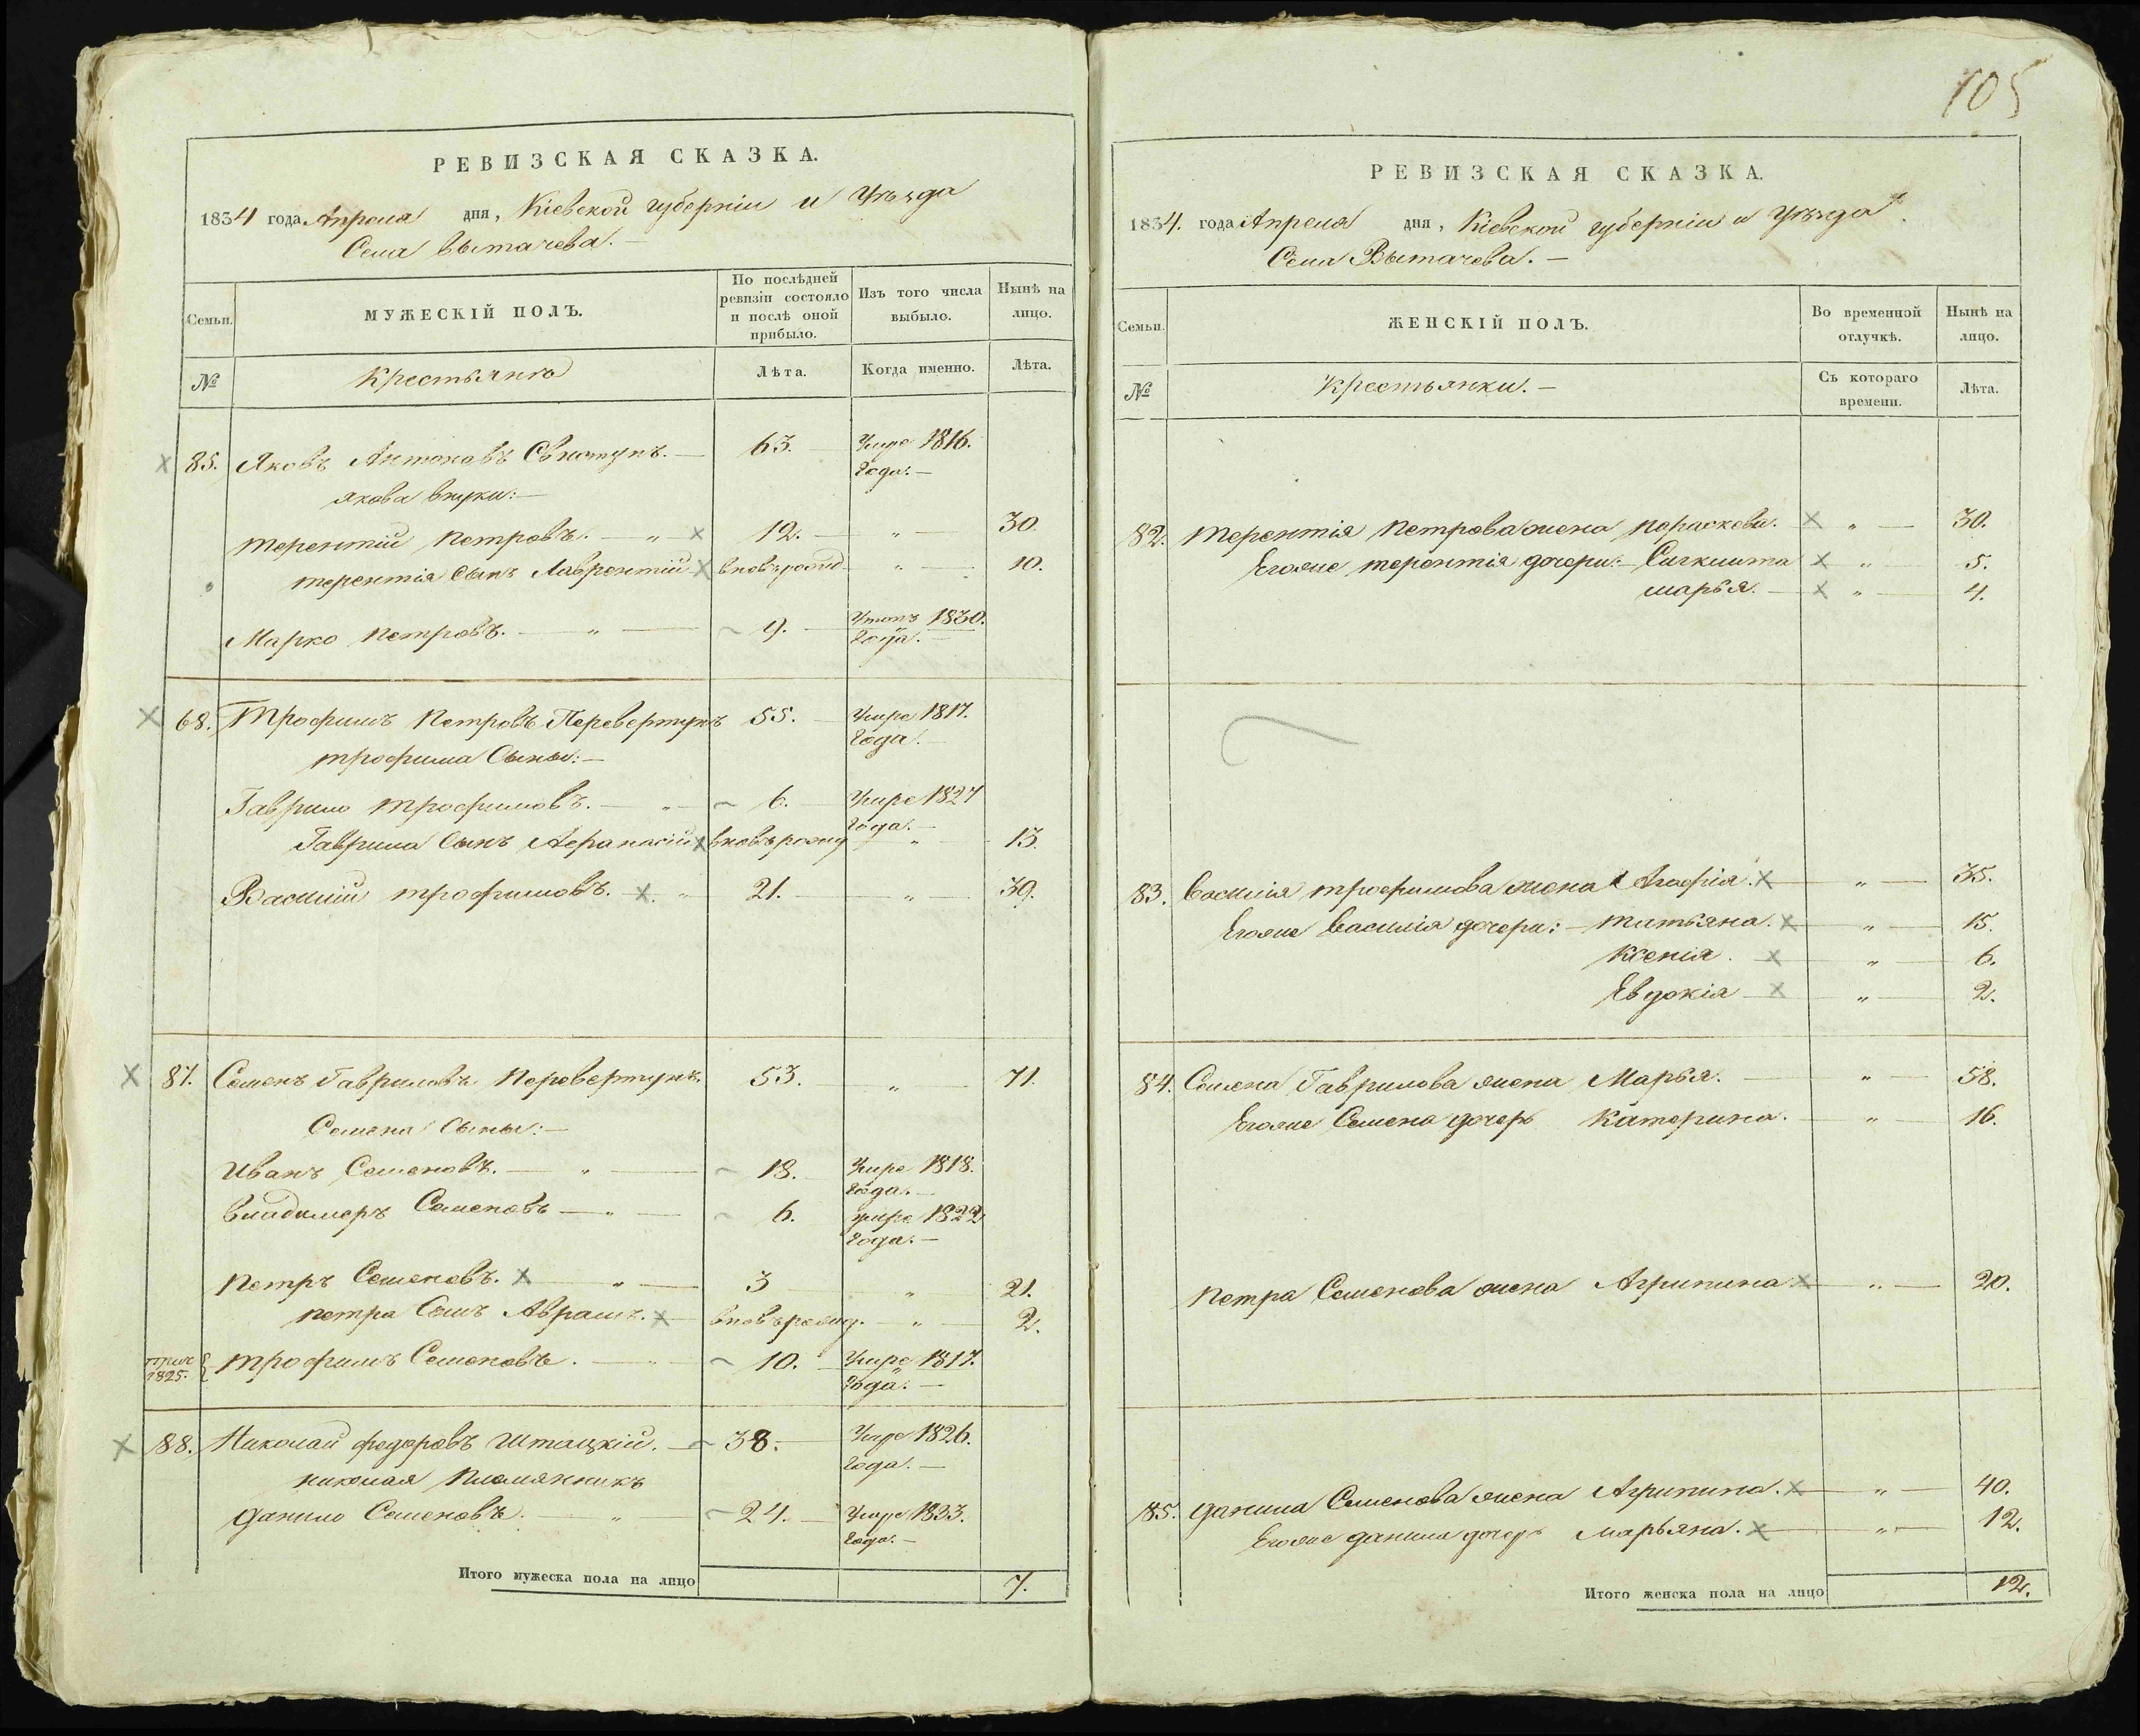 105
РЕВИЗСКАЯ СКАЗКА.
1834 года Апреля дня, Кіевской губерніи и Уѣзда
Села Вытачева. —
Семьи. МУЖЕСКІЙ ПОЛЪ. По послѣдней ревизіи состояло и послѣ оной прибыло. Изъ того числа выбыло. Нынѣ на лицо.
№ Крестьянъ Лѣта. Когда именно. Лѣта.
85. Яковъ Антоновъ Свистунъ. — 63. Умре 1816.
Года. —
Якова внуки: —
Терентій Петровъ. — „ — 12. — „ — 30.
Терентія сынъ Лаврентій вновьрожд. „ — 10.
Марко Петровъ. — „ — 9. — 1830.
Года. —
68. Трофимъ Петровъ Перевертунъ 55. — Умре 1817.
Года. —
Трофима Сыны: —
Гаврило Трофимовъ. — „ — 6. Умре 1827
Года. —
Гаврила Сынъ Афанасій вновьрожд — „ — 13.
Василій Трофимовъ. — „ 21. — „ — 39.
87. Семенъ Гавриловъ Перевертунъ. 53. — „ — 71.
Семена Сыны: —
Иванъ Семеновъ. — „ — 18. — Умре 1818.
Года. —
Владимеръ Семеновъ — „ — 6. умре 1822
Года. —
Петръ Семеновъ. — „ — 3 — „ — 21.
Петра Сынъ Абрамъ. — вновьрожд. — „ — 2.
1825. Трофимъ Семеновъ. — „ — 10. — Умре 1817.
Года. —
88. Николай Федоровъ Штацкій. — 38. — Умре 1826.
Года. —
Николая Племянникъ
Данило Семеновъ. — „ — 24. — Умре 1833.
Года. —
Итого мужеска пола на лицо 7.
РЕВИЗСКАЯ СКАЗКА.
1834. года Апреля дня, Кіевской губерніи и Уѣзда.
Села Вытачева. —
Семьи. ЖЕНСКІЙ ПОЛЪ. Во временной отлучкѣ. Нынѣ на лицо.
№ Крестьянки. — Съ котораго времени. Лѣта.
82. Терентія Петрова жена Параскеви. „ — 30.
Егоже Терентія дочери: — „ — 5.
Марья. — „ — 4.
83. Василія Трофимова жена Агафія. — „ — 35.
Егоже Василія дочери: — Татьяна. — „ — 15.
Ксенія. — „ — 6.
Евдокія — „ — 2.
84. Семена Гаврилова жена Марья. — „ — 58.
Егоже Семена дочерь Катерина. — „ — 16.
Петра Семенова жена Агрипина — „ — 20.
85. Данила Семенова жена Агрипина. — „ — 40.
Егоже Данила дочерь Марьяна. — „ — 12.
Итого женска пола на лицо 12.